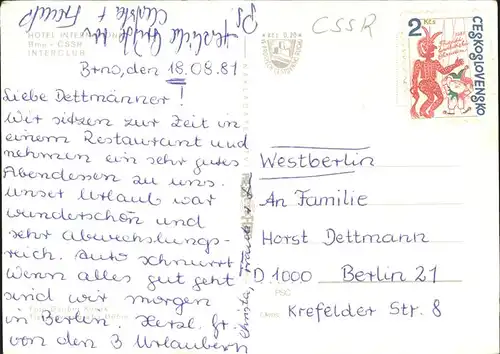 Ps.
Herzliche Grüße von
Christa + Freund
HOTEL INTER
Brno - CSSR
INTERCLUB
Brno, den 18.08.81
Liebe Dettmänner!
Wir sitzen zur Zeit in
einem Restaurant und
nehmen ein sehr gutes
Abendessen zu uns.
Unser Urlaub war
wunderschön und
sehr abwechslungs-
reich. Auto schnurrt
Wenn alles gut geht
sind wir morgen
in Berlin. Herzl. Gr.
von den 3 Urlaubern
Christa,
CSSR
Kčs 0,20
2 Kčs
ČESKOSLOVENSKO
Westberlin
An Familie
Horst Dettmann
D. 1000 Berlin 21
PSČ
Krefelder Str. 8